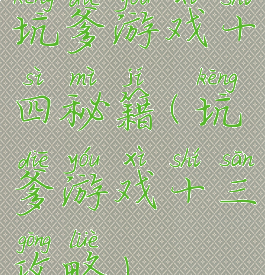 kēng diē yóu xì shí
坑爹游戏十
sì mì jí kēng
四秘籍(坑
diē yóu xì shí sān
爹游戏十三
gōng lüè
攻略)